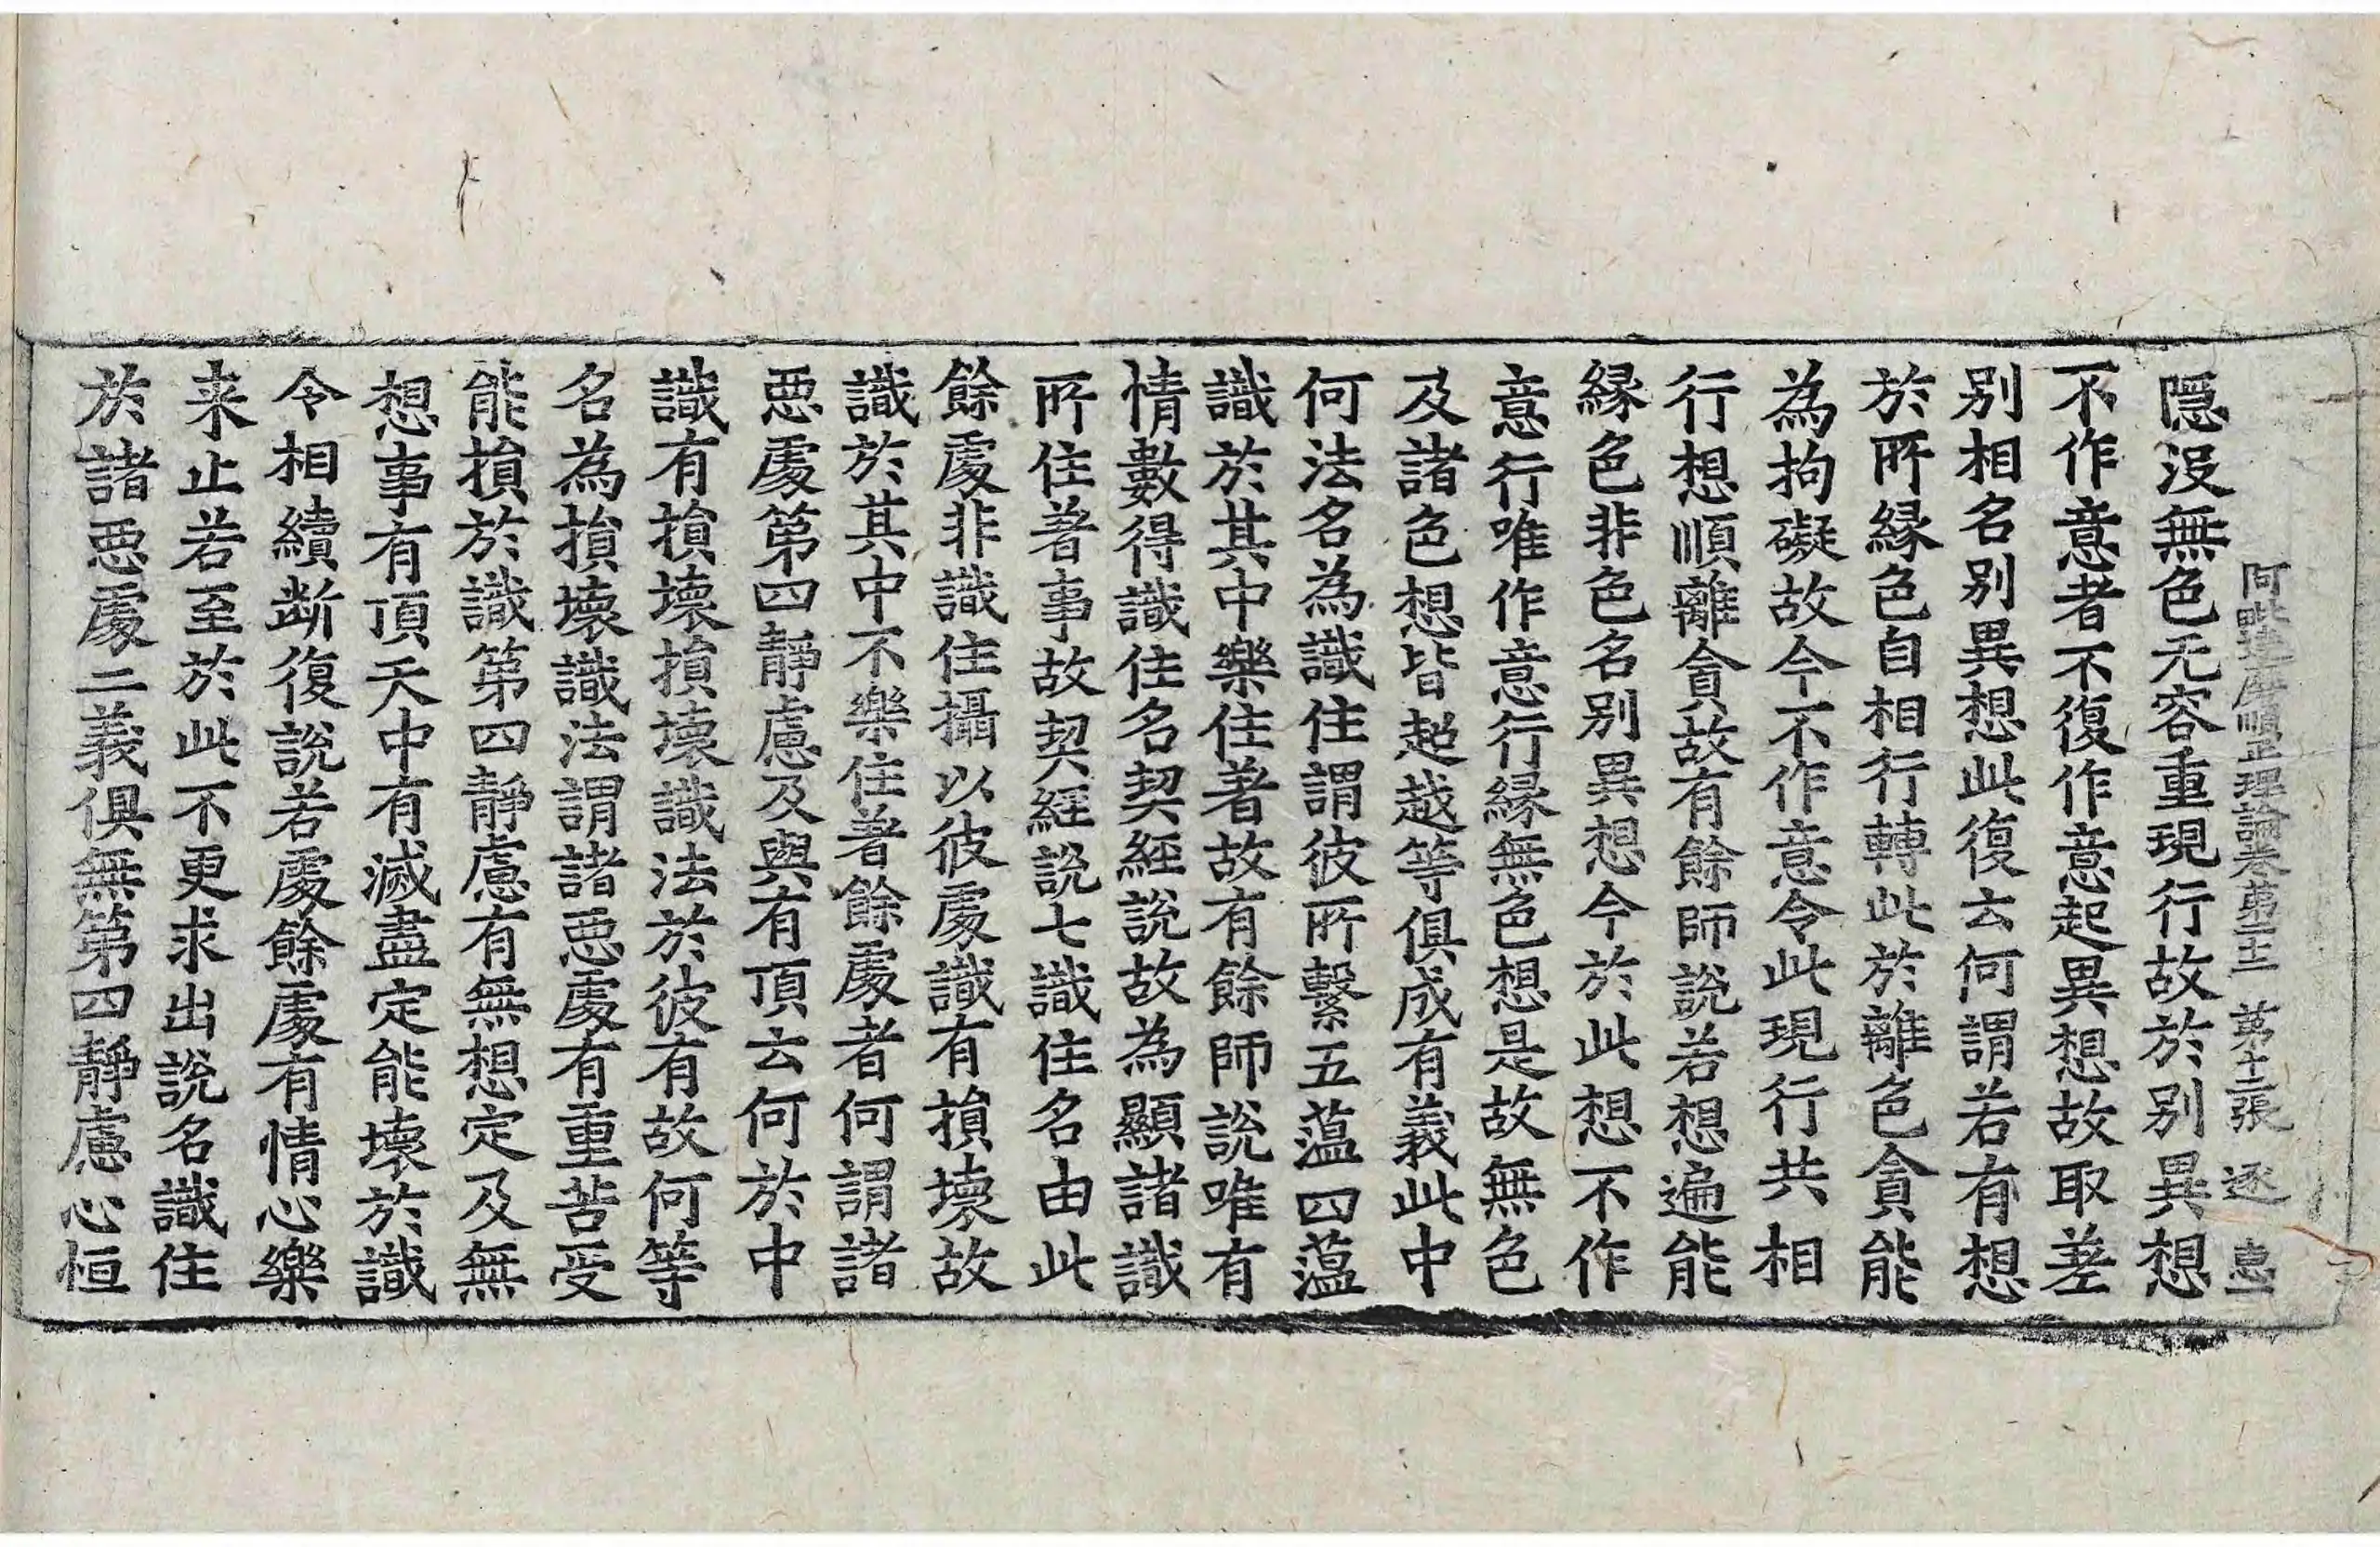 阿毗達磨順正理論卷第二十二 第十二張 逐 惠
隱没無色无容重現行故於别異想
不作意者不復作意起異想故取差
别相名别異想此復云何謂若有想
於所縁色自相行轉此於離色貪能
為拘礙故今不作意令此現行共相
行想順離貪故有餘師說若想遍能
縁色非色名别異想今於此想不作
意行唯作意行縁無色想是故無色
及諸色想皆超越等俱成有義此中
何法名為識住謂彼所繫五蕰四蕰
識於其中樂住著故有餘師說唯有
情數得識住名契經說故為顯諸識
所住著事故契經說七識住名由此
餘處非識住攝以彼處識有損壞故
識於其中不樂住著餘處者何謂諸
惡處第四靜慮及與有頂云何於中
識有損壞損壞識法於彼有故何等
名為損壞識法謂諸惡處有重苦受
能損於識第四靜慮有無想定及無
想事有頂天中有滅盡定能壞於識
令相續斷復說若處餘處有情心樂
来止若至於此不更求出說名識住
於諸惡處二義俱無第四靜慮心恒